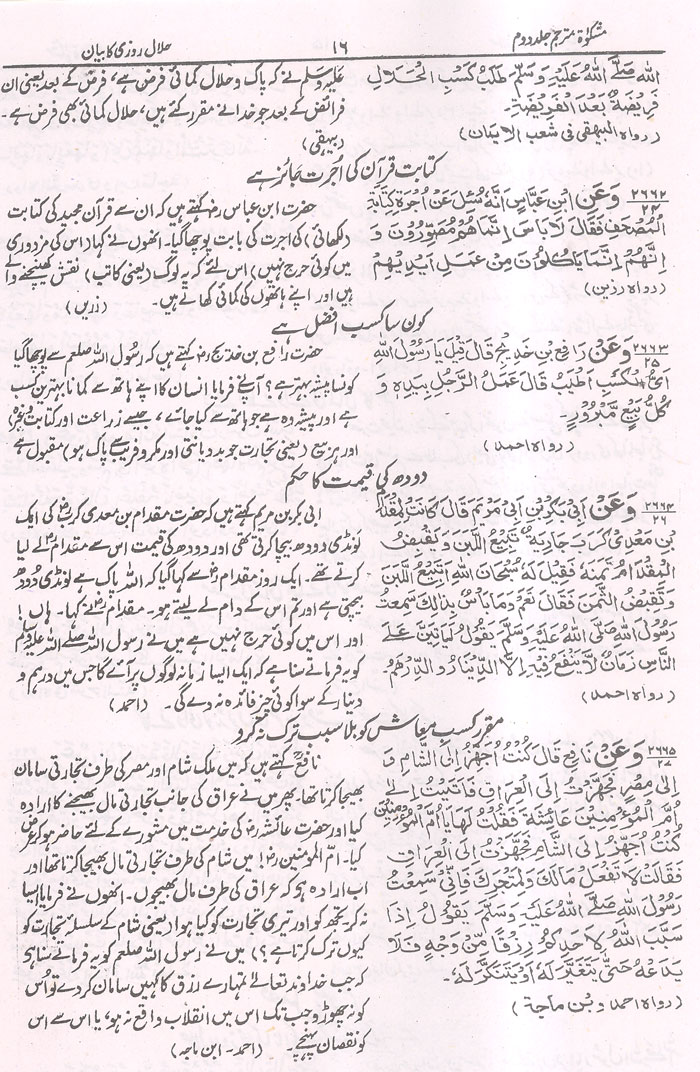 مشکوٰۃ مترجم جلد دوم
۱۶
حلال روزی کا بیان
اللہ صَلَّی اللہُ عَلَیْہِ وَسَلَّمَ طَلَبُ کَسْبِ الْحَلَالِ
فَرِیْضَۃٌ بَعْدَ الْفَرِیْضَۃِ۔
(رواہ البیھقی فی شعب الایمان)
علیہ وسلم نے کہ پاک و حلال کمائی فرض ہے، فرض کے بعد یعنی ان
فرائض کے بعد جو خدا نے مقرر کئے ہیں، حلال کمائی بھی فرض ہے۔
(بیہقی)
کتابت قرآن کی اُجرت جائز ہے
۲۶۶۲
۲۴
وَعَنِ ابْنِ عَبَّاسٍ اَنَّہٗ سُئِلَ عَنْ اُجْرَۃِ کِتَابَۃِ
الْمُصْحَفِ فَقَالَ لَا بَاْسَ اِنَّمَا ھُمْ مُصَوِّرُوْنَ وَ
اِنَّھُمْ اِنَّمَا یَاکُلُوْنَ مِنْ عَمَلِ اَیْدِیْھِمْ
(رواہ رزین)
حضرت ابن عباس رض کہتے ہیں کہ ان سے قرآن مجید کی کتابت
(لکھائی) کی اجرت کی بابت پوچھا گیا۔ انھوں نے کہا، اس کی مزدوری
میں کوئی حرج نہیں) اس لئے کہ یہ لوگ (یعنی کاتب) نقش کھینچنے والے
ہیں اور اپنے ہاتھوں کی کمائی کھاتے ہیں۔ (رزین)
کون سا کسب افضل ہے
۲۶۶۳
۲۵
وَعَنْ رَافِعِ بْنِ خَدِیْجٍ قَالَ قِیْلَ یَا رَسُوْلَ اللہِ
اَیُّ الْکَسْبِ اَطْیَبُ قَالَ عَمَلُ الرَّجُلِ بِیَدِہٖ وَ
کُلُّ بَیْعٍ مَّبْرُوْرٍ۔
(رواہ احمد)
حضرت رافع بن خدیج رض کہتے ہیں کہ رسول اللہ صلعم سے پوچھا گیا
کونسا پیشہ بہتر ہے؟ آپ نے فرمایا انسان کا اپنے ہاتھ سے کمانا بہترین کسب
ہے اور پیشہ وہ ہے جو ہاتھ سے کیا جائے، جیسے زراعت اور کتابت وغیرہ)
اور ہر بیع (یعنی تجارت جو بد دیانتی اور مکر و فریب سے پاک ہو) مقبول ہے
دودھ کی قیمت کا حکم
۲۶۶۴
۲۶
وَعَنْ اَبِیْ بَکْرِ بْنِ اَبِیْ مَرْیَمَ قَالَ کَانَتْ لِمِقْدَامِ
بْنِ مَعْدِیْ کَرَبَ جَارِیَۃٌ تَبِیْعُ اللَّبَنَ وَیَقْبِضُ
الْمِقْدَامُ ثَمَنَہٗ فَقِیْلَ لَہٗ سُبْحَانَ اللہِ اَتَبِیْعُ اللَّبَنَ
وَتَقْبِضُ الثَّمَنَ فَقَالَ نَعَمْ وَمَا بَاْسٌ بِذٰلِکَ سَمِعْتُ
رَسُوْلَ اللہِ صَلَّی اللہُ عَلَیْہِ وَسَلَّمَ یَقُوْلُ لَیَاْتِیَنَّ عَلَی
النَّاسِ زَمَانٌ لَّا یَنْفَعُ فِیْہِ اِلَّا الدِّیْنَارُ وَالدِّرْھَمُ۔
(رواہ احمد)
ابی بکر بن مریم کہتے ہیں کہ حضرت مقدام بن معدی کرب رض کی ایک
لونڈی دودھ بیچا کرتی تھی اور دودھ کی قیمت اس سے مقدام رض لے لیا
کرتے تھے۔ ایک روز مقدام رض سے کہا گیا کہ اللہ پاک ہے لونڈی دودھ
بیچتی ہے اور تم اس کے دام لے لیتے ہو۔ مقدام رض نے کہا۔ ہاں!
اور اس میں کوئی حرج نہیں ہے میں نے رسول اللہ صلے اللہ علیہ وسلم
کو یہ فرماتے سنا ہے کہ ایک ایسا زمانہ لوگوں پر آئے گا جس میں درہم و
دینار کے سوا کوئی چیز فائدہ نہ دے گی۔ (احمد)
مقرر کسب معاش کو بلا سبب ترک نہ کرو
۲۶۶۵
۲۷
وَعَنْ نَافِعٍ قَالَ کُنْتُ اُجَھِّزُ اِلَی الشَّامِ وَ
اِلٰی مِصْرَ فَجَھَّزْتُ اِلَی الْعِرَاقِ فَاَتَیْتُ اِلٰی
اُمِّ الْمُؤْمِنِیْنَ عَائِشَۃَ فَقُلْتُ لَھَا یَا اُمَّ الْمُؤْمِنِیْنَ
کُنْتُ اُجَھِّزُ اِلَی الشَّامِ فَجَھَّزْتُ اِلَی الْعِرَاقِ
فَقَالَتْ لَا تَفْعَلْ مَالَکَ وَلِمَتْجَرِکَ فَاِنِّیْ سَمِعْتُ
رَسُوْلَ اللہِ صَلَّی اللہُ عَلَیْہِ وَسَلَّمَ یَقُوْلُ اِذَا
سَبَّبَ اللہُ لِاَحَدِکُمْ رِزْقًا مِّنْ وَجْہٍ فَلَا
یَدَعْہُ حَتّٰی یَتَغَیَّرَ لَہٗ اَوْ یَتَنَکَّرَ لَہٗ۔
(رواہ احمد و بن ماجۃ)
نافع رح کہتے ہیں کہ میں ملک شام اور مصر کی طرف تجارتی سامان
بھیجا کرتا تھا۔ پھر میں نے عراق کی جانب تجارتی مال بھیجنے کا ارادہ
کیا اور حضرت عائشہ رض کی خدمت میں مشورے کے لئے حاضر ہو کر عرض
کیا۔ امّ المومنین رض! میں شام کی طرف تجارتی مال بھیجا کرتا تھا اور
اب ارادہ ہے کہ عراق کی طرف مال بھیجوں۔ انھوں نے فرمایا ایسا
نہ کر تجھ کو اور تیری تجارت کو کیا ہوا (یعنی شام کے سلسلہ تجارت کو
کیوں ترک کرتا ہے؟) میں نے رسول اللہ صلعم کو یہ فرماتے سنا ہے
کہ جب خداوند تعالےٰ تمہارے رزق کا کہیں سامان کر دے تو اُس
کو نہ چھوڑو جب تک اس میں انقلاب واقع نہ ہو، یا اس سے اس
کو نقصان پہنچے۔ (احمد۔ ابن ماجہ)